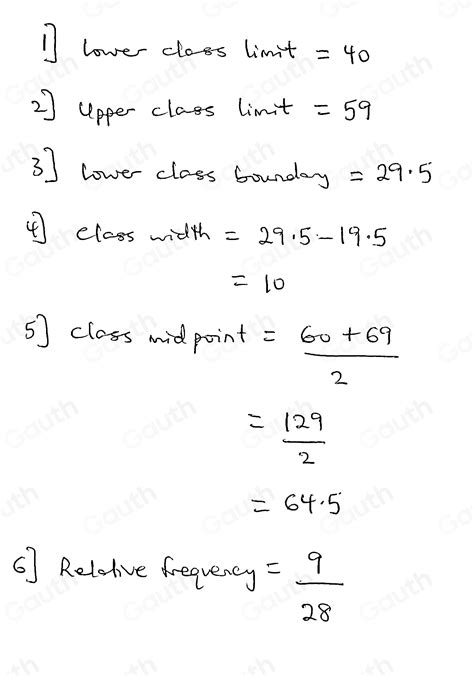 1] Lower class limit = 40
2] Upper class limit = 59
3] Lower class boundary = 29.5
4] Class width = 29.5 - 19.5
= 10
5] Class midpoint = 60 + 69
2
= 129
2
= 64.5
6] Relative frequency = 9
28